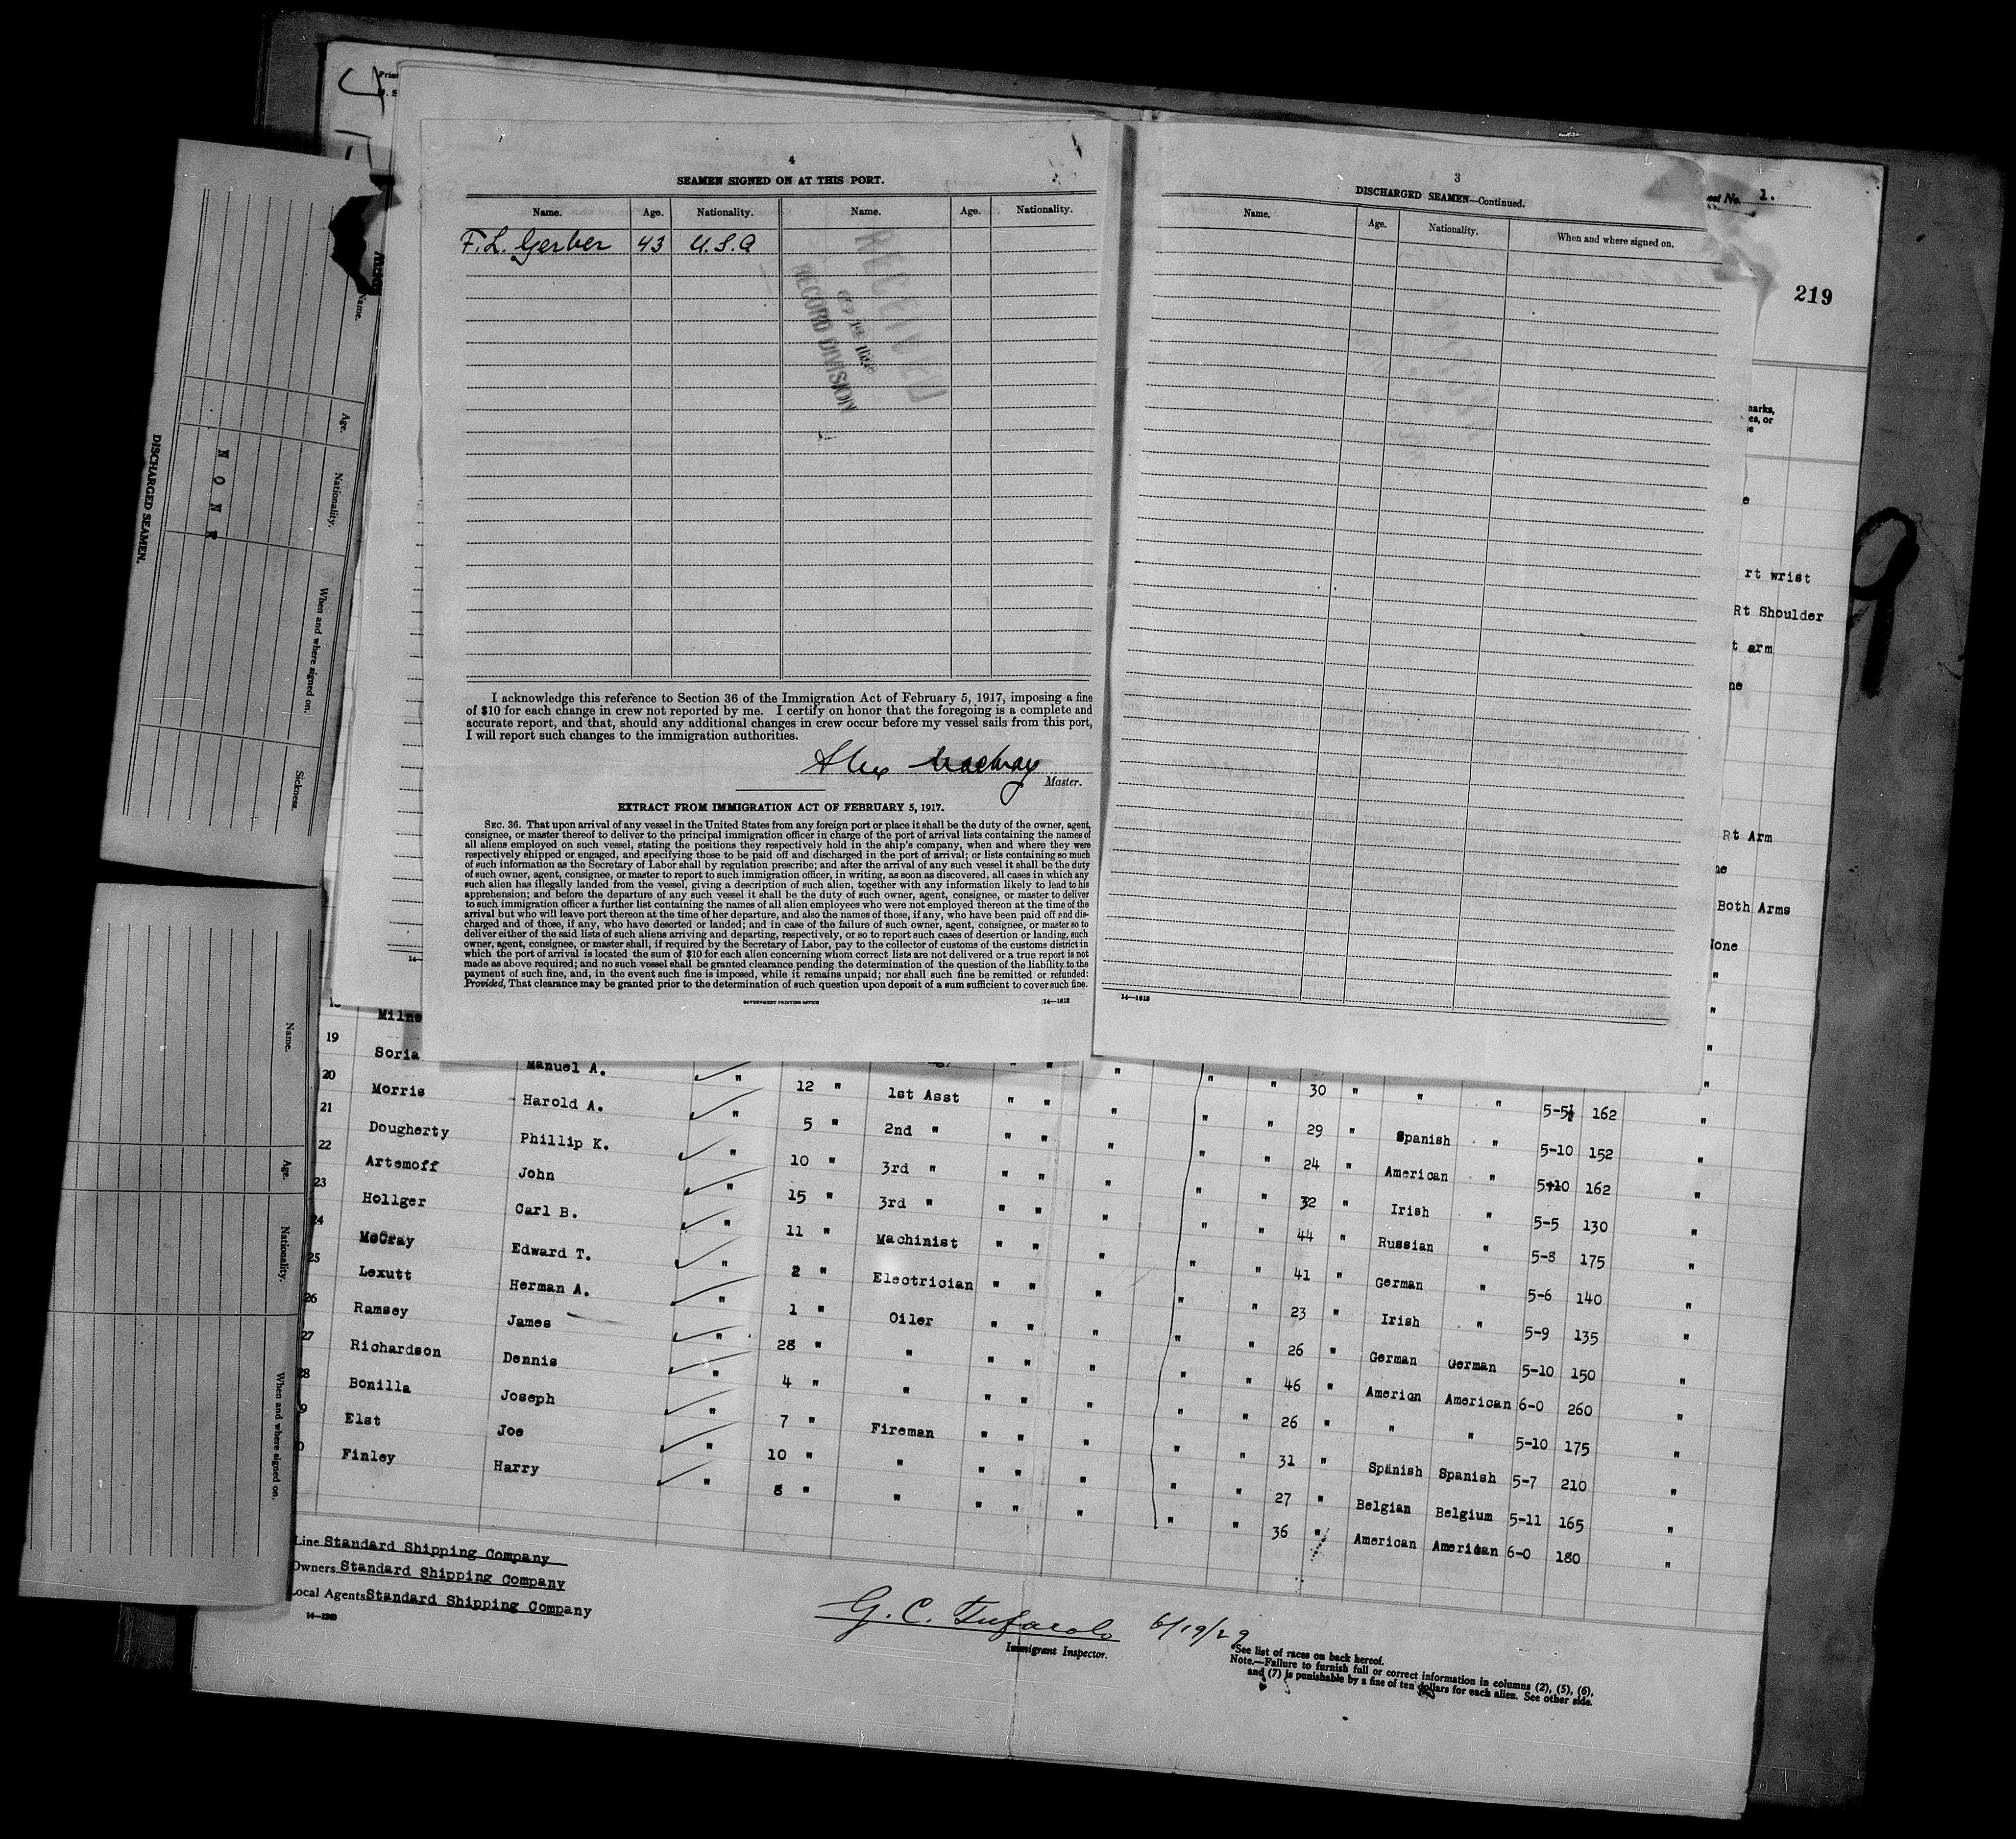 4
SEAMEN SIGNED ON AT THIS PORT.
Name. Age. Nationality. Name. Age. Nationality.
F. L. Gerber 43 U.S.A
RECEIVED
RECORD DIVISION
I acknowledge this reference to Section 36 of the Immigration Act of February 5, 1917, imposing a fine
of $10 for each change in crew not reported by me. I certify on honor that the foregoing is a complete and
accurate report, and that, should any additional changes in crew occur before my vessel sails from this port,
I will report such changes to the immigration authorities.
Alex
Master.
EXTRACT FROM IMMIGRATION ACT OF FEBRUARY 5, 1917.
SEC. 36. That upon arrival of any vessel in the United States from any foreign port or place it shall be the duty of the owner, agent,
consignee, or master thereof to deliver to the principal immigration officer in charge of the port of arrival lists containing the names of
all aliens employed on such vessel, stating the positions they respectively hold in the ship's company, when and where they were
respectively shipped or engaged, and specifying those to be paid off and discharged in the port of arrival; or lists containing so much
of such information as the Secretary of Labor shall by regulation prescribe; and after the arrival of any such vessel it shall be the duty
of such owner, agent, consignee, or master to report to such immigration officer, in writing, as soon as discovered, all cases in which any
such alien has illegally landed from the vessel, giving a description of such alien, together with any information likely to lead to his
apprehension; and before the departure of any such vessel it shall be the duty of such owner, agent, consignee, or master to deliver
to such immigration officer a further list containing the names of all alien employees who were not employed thereon at the time of the
arrival but who will leave port thereon at the time of her departure, and also the names of those, if any, who have been paid off and dis-
charged and of those, if any, who have deserted or landed; and in case of the failure of such owner, agent, consignee, or master so to
deliver either of the said lists of such aliens arriving and departing, respectively, or so to report such cases of desertion or landing, such
owner, agent, consignee, or master shall, if required by the Secretary of Labor, pay to the collector of customs of the customs district in
which the port of arrival is located the sum of $10 for each alien concerning whom correct lists are not delivered or a true report is not
made as above required; and no such vessel shall be granted clearance pending the determination of the question of the liability to the
payment of such fine, and, in the event such fine is imposed, while it remains unpaid; nor shall such fine be remitted or refunded:
Provided, That clearance may be granted prior to the determination of such question upon deposit of a sum sufficient to cover such fine.
GOVERNMENT PRINTING OFFICE 14—1618
3
DISCHARGED SEAMEN—Continued.
Name. Age. Nationality. When and where signed on.
14—1618
No. 1.
219
rt wrist
Rt Shoulder
t arm
Rt Arm
Both Arms
DISCHARGED SEAMEN.
Name. Age. Nationality. When and where signed on. Sickness.
Name. Age. Nationality. When and where signed on.
Milne
19 Soria Manuel A. " 12 " 1st Asst " " " " " 30 " " " 5-5½ 162 "
20 Morris Harold A. " 5 " 2nd " " " " " " 29 " Spanish " 5-10 152 "
21 Dougherty Phillip K. " 10 " 3rd " " " " " " 24 " American " 5-10 162 "
22 Artemoff John " 15 " 3rd " " " " " " 32 " Irish " 5-5 130 "
23 Hollger Carl B. " 11 " Machinist " " " " " 44 " Russian " 5-8 175 "
24 McCray Edward T. " 2 " Electrician " " " " " 41 " German " 5-6 140 "
25 Lexutt Herman A. " 1 " Oiler " " " " " 23 " Irish " 5-9 135 "
26 Ramsey James " 28 " " " " " " " 26 " German German 5-10 150 "
27 Richardson Dennis " 4 " " " " " " " 46 " Amerion American 6-0 260 "
28 Bonilla Joseph " 7 " Fireman " " " " " 26 " " " 5-10 175 "
9 Elst Joe " 10 " " " " " " " 31 " Spanish Spanish 5-7 210 "
0 Finley Harry " 8 " " " " " " " 27 " Belgian Belgium 5-11 165 "
36 " American American 6-0 180 "
Line Standard Shipping Company
Owners Standard Shipping Company
Local Agents Standard Shipping Company
G. C. Tufarolo 6/19/29
Immigrant Inspector.
*See list of races on back hereof.
Note.—Failure to furnish full or correct information in columns (2), (5), (6),
and (7) is punishable by a fine of ten dollars for each alien. See other side.